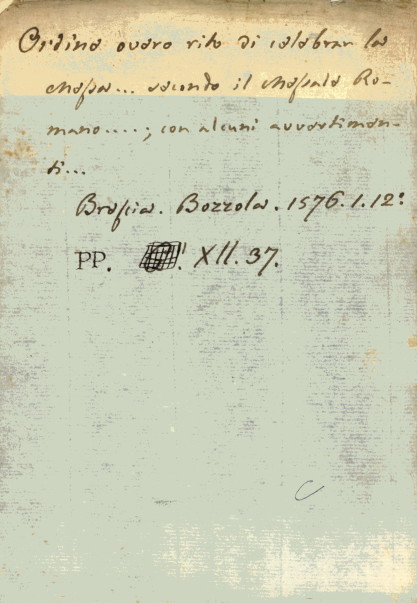 Ordine overo rito di celebrar la
Messa... secondo il Messale Ro-
mano....; con alcuni avvertimen-
ti...
Brescia. Bozzola. 1576. 1. 12°
PP. XII. 37.
C